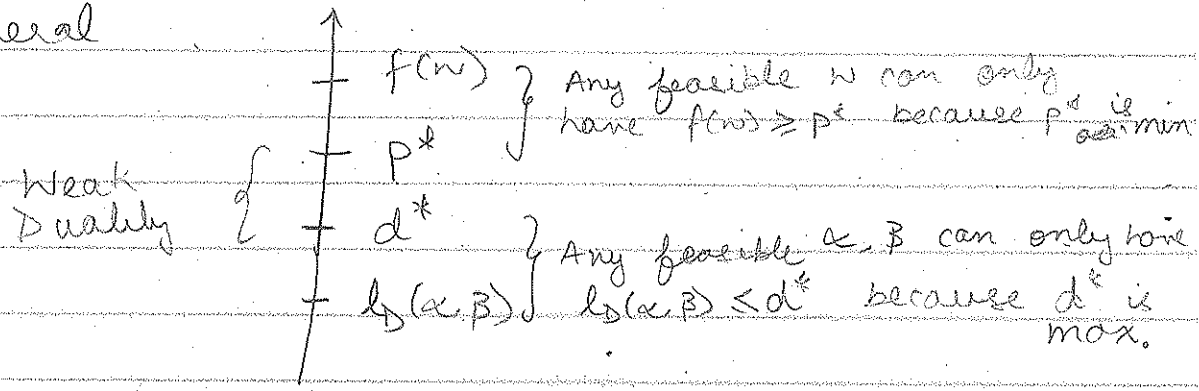 eral
f(w) } Any feasible w can only
have f(w) ≥ p* because p* is min
p*
Weak
Duality {
d*
} Any feasible α, β can only have
l_D(α, β) l_D(α, β) ≤ d* because d* is
max.